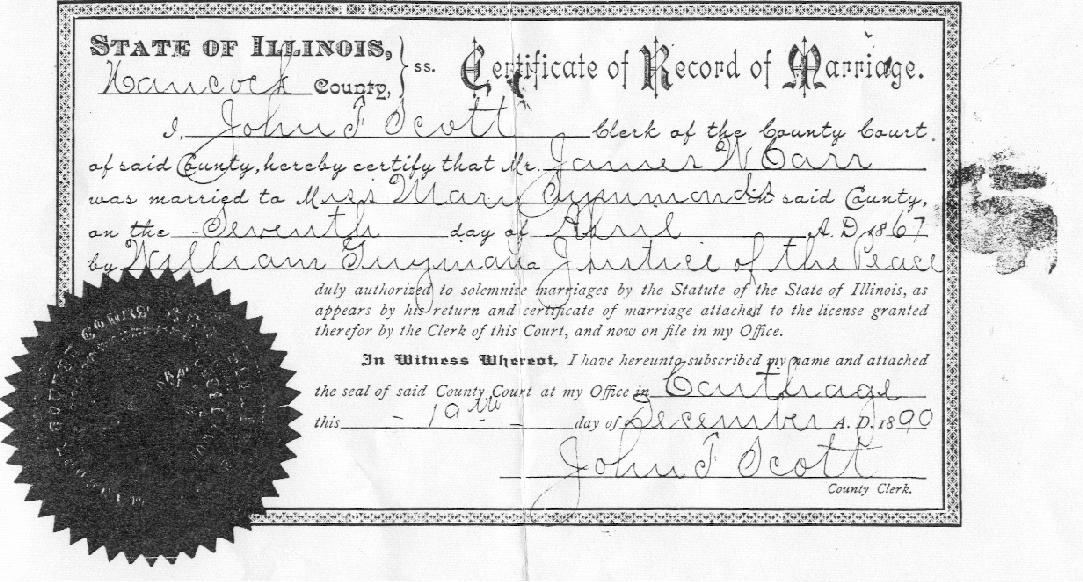 STATE OF ILLINOIS, } ss. Certificate of Record of Marriage.
Hancock County,
I, John F Scott Clerk of the County Court
of said County, hereby certify that Mr. James W Carr
was married to Miss Mary Symmonds in said County,
on the Seventh day of April A. D. 1867
by William Guyman a Justice of the Peace
duly authorized to solemnize marriages by the Statute of the State of Illinois, as
appears by his return and certificate of marriage attached to the license granted
therefor by the Clerk of this Court, and now on file in my Office.
In Witness Whereof, I have hereunto subscribed my name and attached
the seal of said County Court at my Office in Carthage
this 19th day of December A. D. 1890
John F Scott
County Clerk.